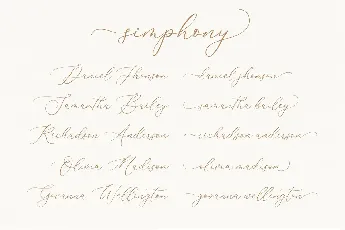 simphony
Daniel Jhonson daniel jhonson
Samantha Bailey samantha bailey
Richadson Anderson richadson anderson
Olivia Madison olivia madison
Geovanna Wellington geovanna wellington